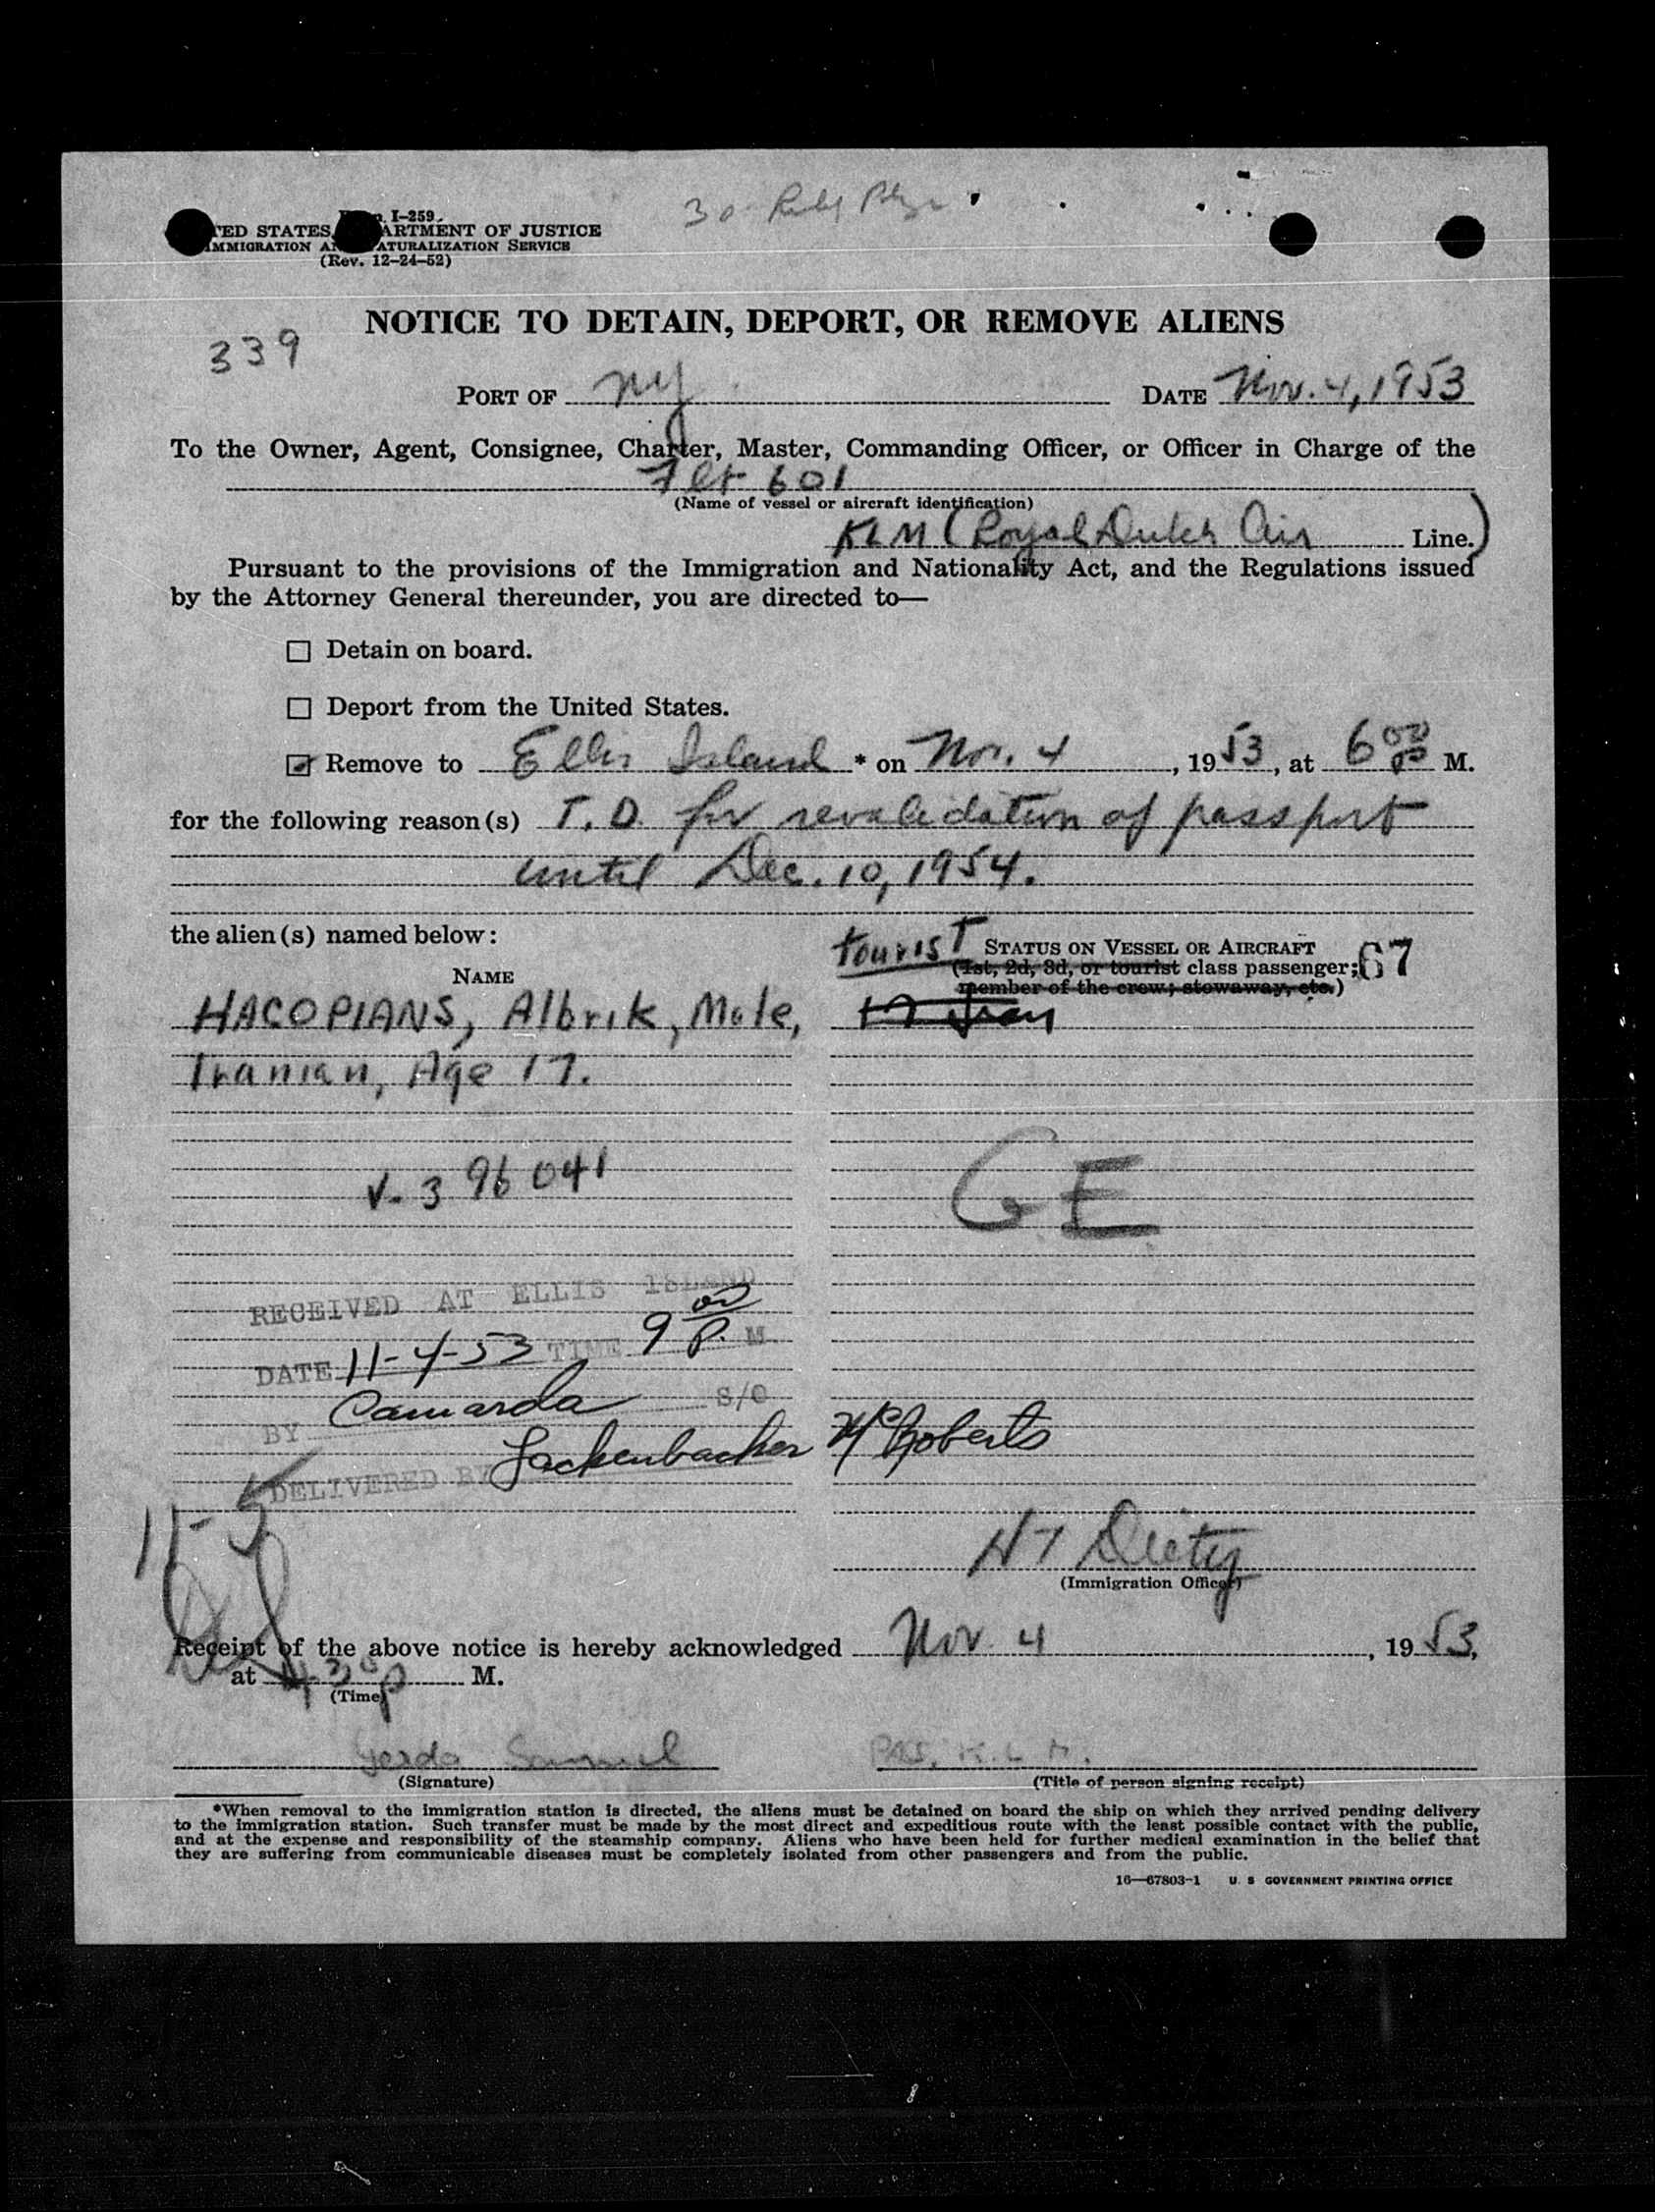 I-259
TED STATES, ARTMENT OF JUSTICE
IMMIGRATION A ATURALIZATION SERVICE
(Rev. 12-24-52)
30
NOTICE TO DETAIN, DEPORT, OR REMOVE ALIENS
339
PORT OF NY DATE Nov. 4, 1953
To the Owner, Agent, Consignee, Charter, Master, Commanding Officer, or Officer in Charge of the
Flt 601
(Name of vessel or aircraft identification)
KLM (Royal Dutch Air Line.)
Pursuant to the provisions of the Immigration and Nationality Act, and the Regulations issued
by the Attorney General thereunder, you are directed to—
Detain on board.
Deport from the United States.
Remove to Ellis Island * on Nov. 4, 1953, at 6 00 P M.
for the following reason(s) T.D. for revalidation of passport
until Dec. 10, 1954.
the alien(s) named below:
tourist STATUS ON VESSEL OR AIRCRAFT
(1st, 2d, 3d, or tourist class passenger; 67
member of the crew; stowaway, etc.)
NAME
HACOPIANS, Albrik, Male,
Iranian, Age 17.
V-396041
GE
RECEIVED AT ELLIS ISLAND
DATE 11-4-53 TIME 9 00 P. M
BY Camarda S/O
DELIVERED BY Lackenbacher McRoberts
11-5
HT Dietz
(Immigration Officer)
Receipt of the above notice is hereby acknowledged Nov 4, 1953,
at 4 30 p M.
(Time)
Gerda Samuel PAS. K.L.M.
(Signature) (Title of person signing receipt)
*When removal to the immigration station is directed, the aliens must be detained on board the ship on which they arrived pending delivery
to the immigration station. Such transfer must be made by the most direct and expeditious route with the least possible contact with the public,
and at the expense and responsibility of the steamship company. Aliens who have been held for further medical examination in the belief that
they are suffering from communicable diseases must be completely isolated from other passengers and from the public.
16—67803-1 U. S GOVERNMENT PRINTING OFFICE